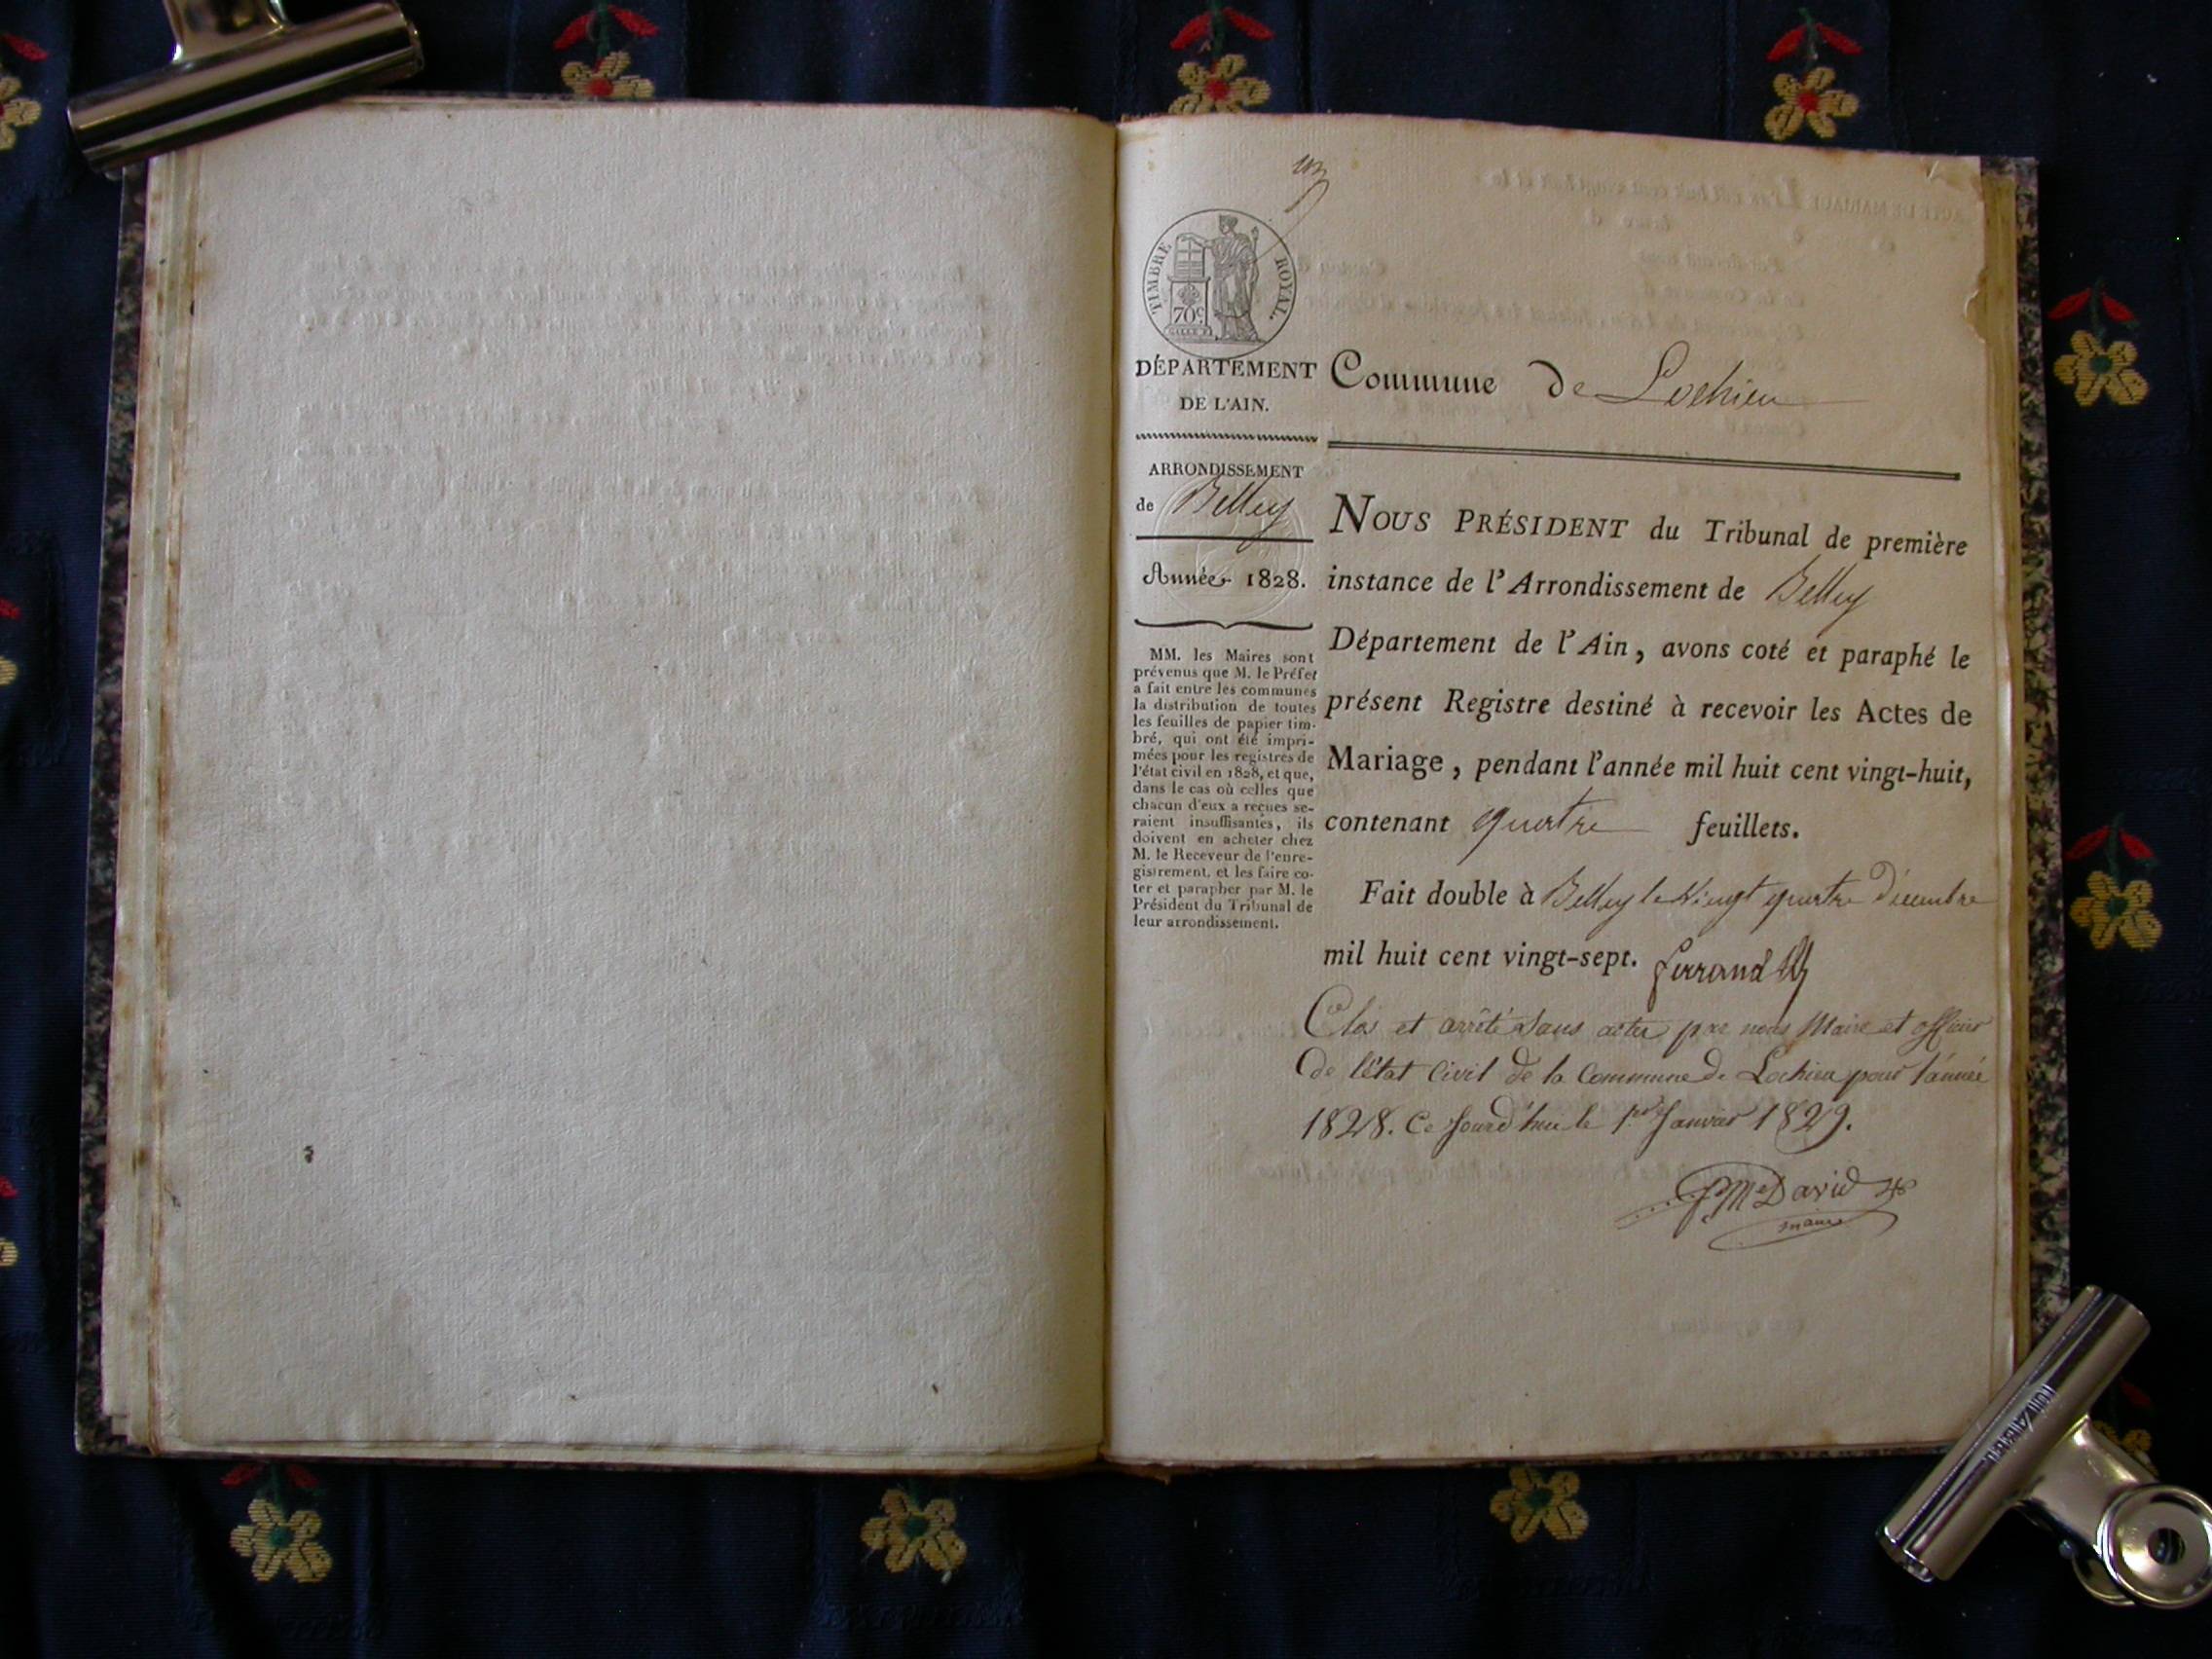 un
TIMBRE ROYAL.
70c
DÉPARTEMENT
DE L'AIN.
Commune De Lochieu
ARRONDISSEMENT
de Belley
Année 1828.
MM. les Maires sont
prévenus que M. le Préfet
a fait entre les communes
la distribution de toutes
les feuilles de papier tim-
bré, qui ont été impri-
mées pour les registres de
l'état civil en 1828, et que,
dans le cas où celles que
chacun d'eux a reçues se-
raient insuffisantes, ils
doivent en acheter chez
M. le Receveur de l'enre-
gistrement, et les faire co-
ter et parapher par M. le
Président du Tribunal de
leur arrondissement.
NOUS PRÉSIDENT du Tribunal de première
instance de l'Arrondissement de Belley
Département de l'Ain, avons coté et paraphé le
présent Registre destiné à recevoir les Actes de
Mariage, pendant l'année mil huit cent vingt-huit,
contenant quatre feuillets.
Fait double à Belley le Vingt quatre Décembre
mil huit cent vingt-sept. Ferrand
Clos et arrêté sans actes par nous Maire et officier
de l'état Civil de la Commune de Lochieu pour l'année
1828. Ce Jourd'hui le 1er Janvier 1829.
David
maire